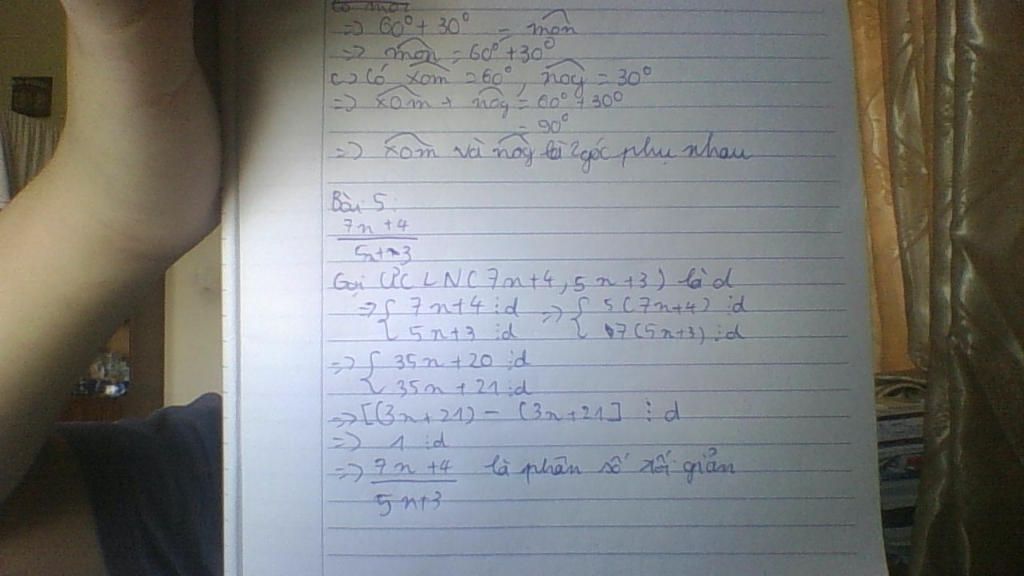 => 60° + 30° = môn
=> mon = 60° + 30°
c) Có xom = 60°, noy = 30°
=> xom + noy = 60° + 30°
= 90°
=> xom và noy là 2 góc phụ nhau
Bài 5:
7n + 4
5n + 3
Gọi ƯCLN(7n+4, 5n+3) là d
=> { 7n+4 ⋮ d => { 5(7n+4) ⋮ d
{ 5n+3 ⋮ d { 7(5n+3) ⋮ d
=> { 35n + 20 ⋮ d
{ 35n + 21 ⋮ d
=> [(3n+21) - (3n+21] ⋮ d
=> 1 ⋮ d
=> 7n + 4 là phân số tối giản
5n+3